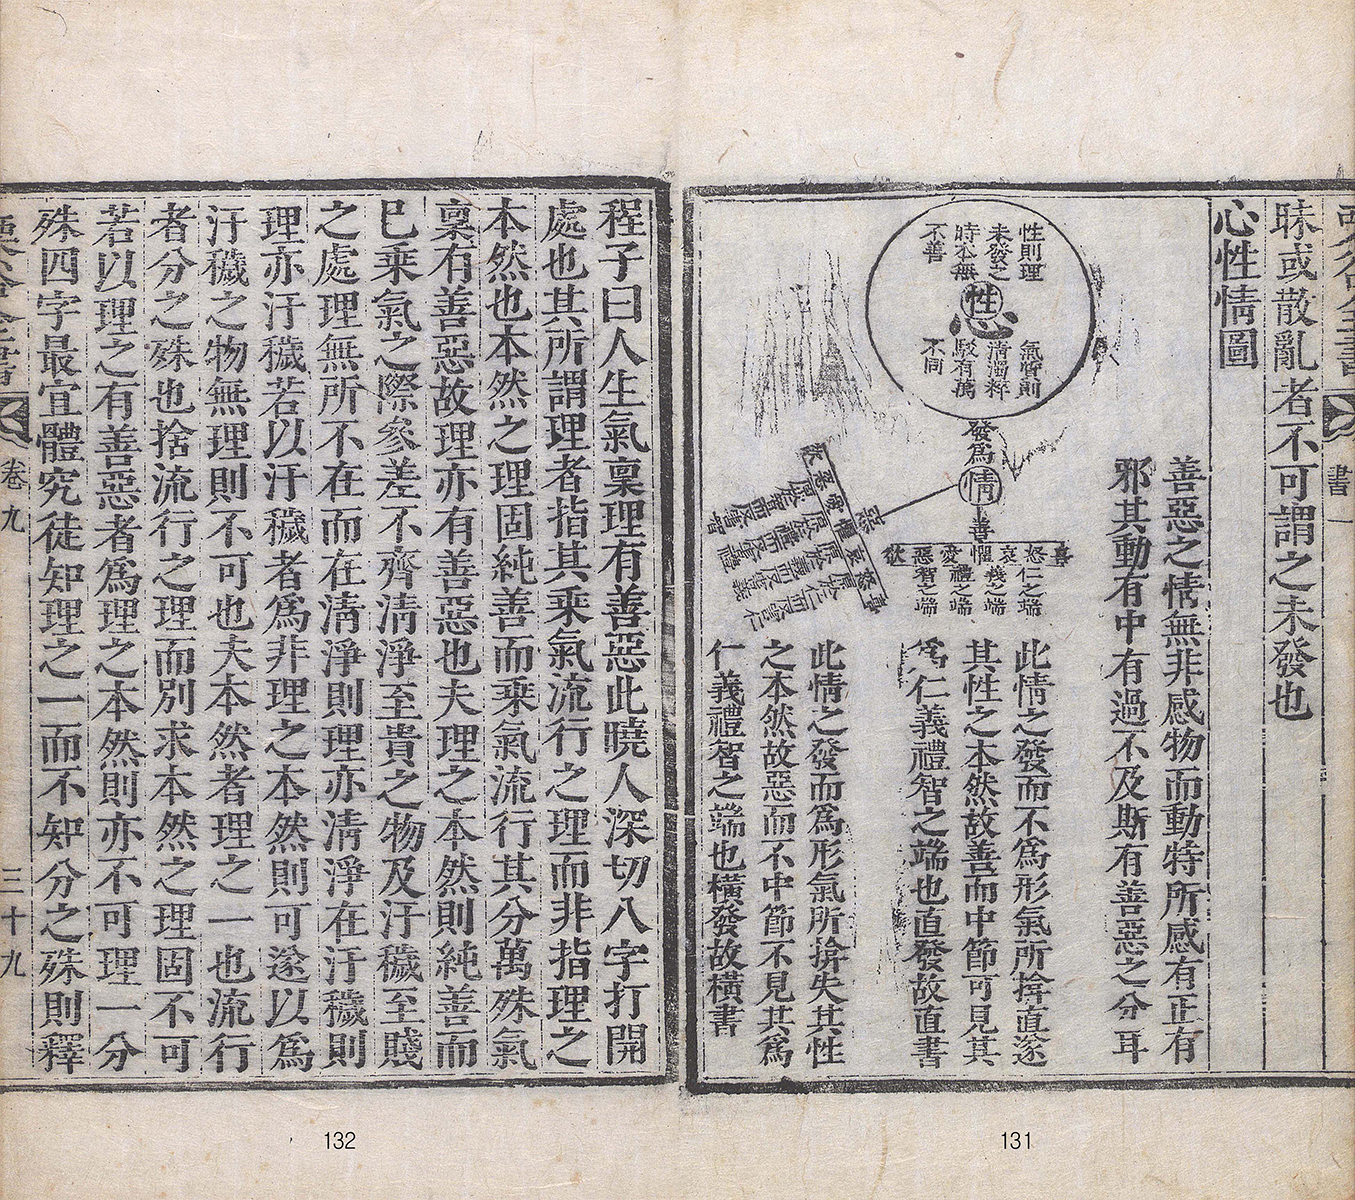 昧或散亂者不可謂之未發也
心性情圖
善惡之情無非感物而動特所感有正有
邪其動有中有過不及斯有善惡之分耳
性則理
未發之
時本無
不善
性
心
氣質則
清濁粹
駁有萬
不同
發爲
情
善
喜怒哀懼愛惡欲
仁之端
義之端
禮之端
智之端
惡
喜怒哀懼愛惡欲
此情之發而不爲形氣所揜直遂
其性之本然故善而中節可見其
爲仁義禮智之端也直發故直書
此情之發而爲形氣所揜失其性
之本然故惡而不中節不見其爲
仁義禮智之端也橫發故橫書
程子曰人生氣稟理有善惡此曉人深切八字打開
處也其所謂理者指其乘氣流行之理而非指理之
本然也本然之理固純善而乘氣流行其分萬殊氣
稟有善惡故理亦有善惡也夫理之本然則純善而
已乘氣之際參差不齊清淨至貴之物及汙穢至賤
之處理無所不在而在清淨則理亦清淨在汙穢則
理亦汙穢若以汙穢者爲非理之本然則可遂以爲
汙穢之物無理則不可也夫本然者理之一也流行
者分之殊也捨流行之理而別求本然之理固不可
若以理之有善惡者爲理之本然則亦不可理一分
殊四字最宜體究徒知理之一而不知分之殊則釋
卷九
三十九
書一
132
131